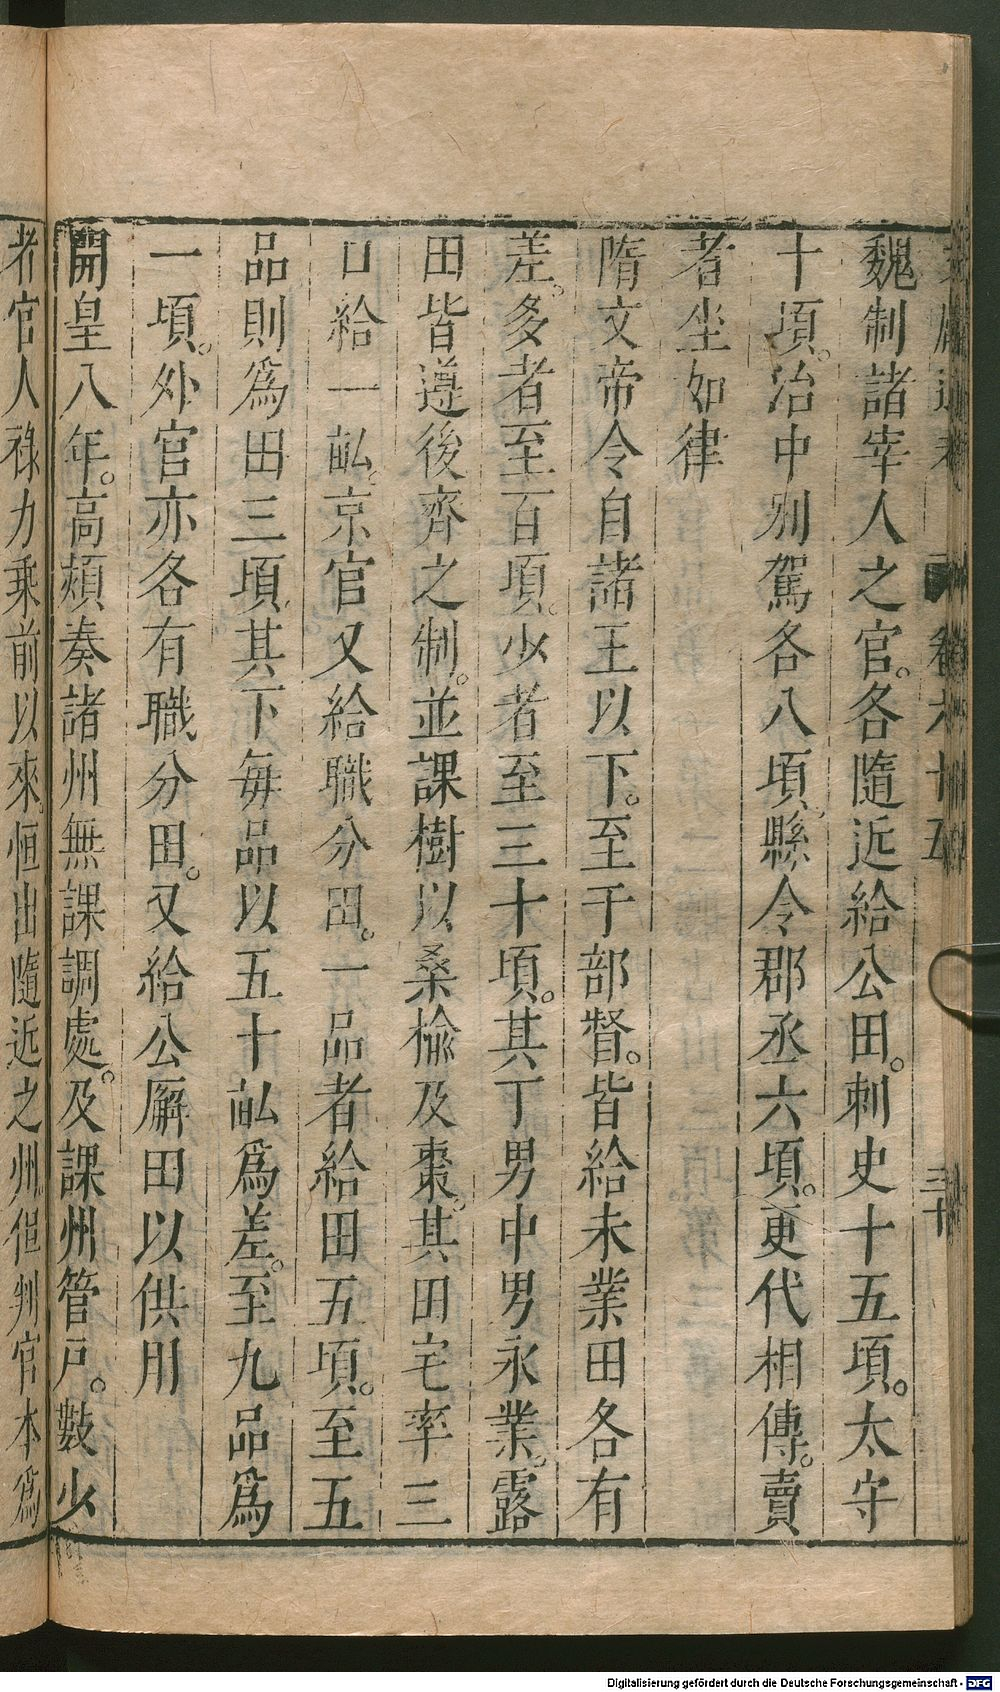 魏制諸宰人之官。各隨近給公田。刺史十五頃。太守
十頃。治中別駕各八頃。縣令郡丞六頃。更代相傳。賣
者坐如律
隋文帝令自諸王以下。至于部督。皆給未業田各有
差。多者至百頃。少者至三十頃。其丁男中男永業。露
田皆遵後齊之制。並課樹以桑楡及棗。其田宅率三
口給一畝。京官又給職分田。一品者給田五頃。至五
品則爲田三頃。其下每品以五十畝爲差。至九品爲
一頃。外官亦各有職分田。又給公廨田以供用
開皇八年。高熲奏諸州無課調處。及課州管戸。數少
者官人祿力乘前以來。恒出隨近之州。但判官本爲
卷六十五
三十
Digitalisierung gefördert durch die Deutsche Forschungsgemeinschaft - DFG